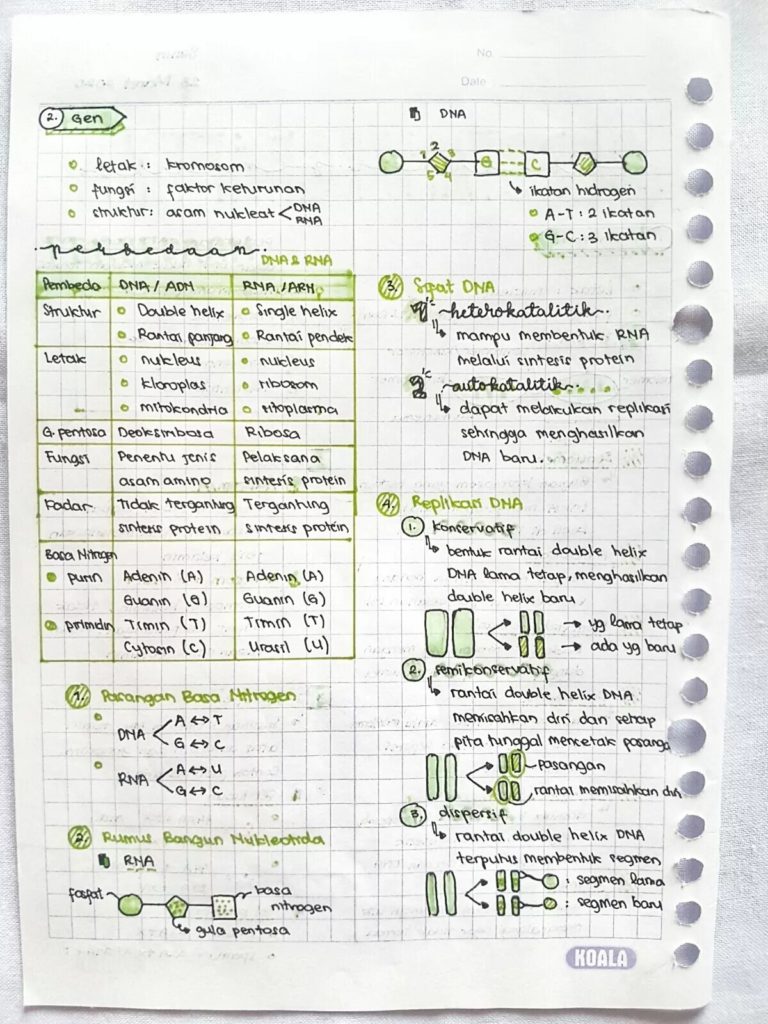 No.
Date
2. Gen
letak : kromosom
fungsi : faktor keturunan
struktur : asam nukleat < DNA
RNA
perbedaan
DNA & RNA
Pembeda DNA / ADN RNA / ARN
Struktur Double helix Single helix
Rantai panjang Rantai pendek
Letak nukleus nukleus
kloroplas ribosom
mitokondria sitoplasma
G. pentosa Deoksiribosa Ribosa
Fungsi Penentu jenis Pelaksana
asam amino sintesis protein
Kadar Tidak tergantung Tergantung
sintesis protein sintesis protein
Basa Nitrogen
purin Adenin (A) Adenin (A)
Guanin (G) Guanin (G)
primidin Timin (T) Timin (T)
Cytosin (C) Urasil (U)
1. Pasangan Basa Nitrogen
DNA < A ↔ T
G ↔ C
RNA < A ↔ U
G ↔ C
2. Rumus Bangun Nukleotida
RNA
fosfat basa
nitrogen
gula pentosa
DNA
1 2 3 4 5 G C
ikatan hidrogen
A-T : 2 ikatan
G-C : 3 ikatan
3. Sifat DNA
1. heterokatalitik
mampu membentuk RNA
melalui sintesis protein
2. autokatalitik
dapat melakukan replikasi
sehingga menghasilkan
DNA baru.
4. Replikasi DNA
1. konservatif
bentuk rantai double helix
DNA lama tetap, menghasilkan
double helix baru
→ yg lama tetap
→ ada yg baru
2. semikonservatif
rantai double helix DNA
memisahkan diri dan setiap
pita tunggal mencetak pasanga
pasangan
rantai memisahkan diri
3. dispersif
rantai double helix DNA
terputus membentuk segmen
: segmen lama
: segmen baru
KOALA